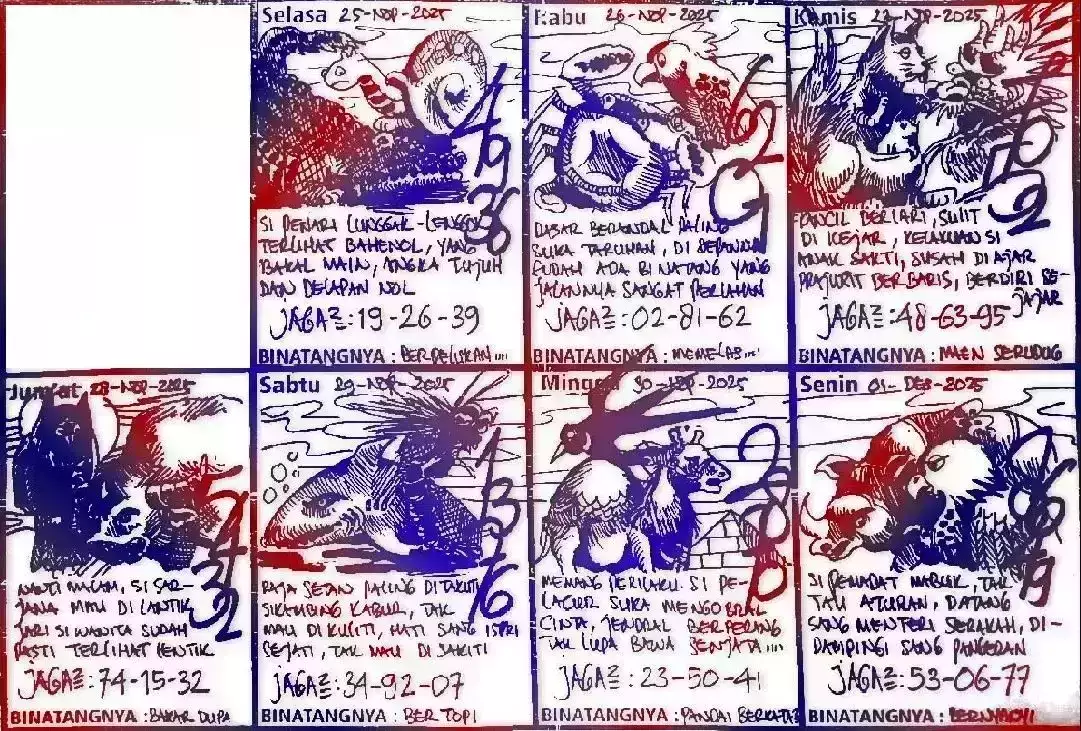 Selasa 25-NOP-2025
SI PENARI LUNGGAK-LENGGOK
TERLIHAT BAHENOL, YANG
BAKAL MAIN, ANGKA TUJUH
DAN DELAPAN NOL
JAGA2: 19-26-39
BINATANGNYA : BERPELISKAN....
Rabu 26-NOP-2025
DASAR BERANDAL PALING
SUKA TARUHAN, DI DEPANNYA
SUDAH ADA BINATANG YANG
JALANNYA SANGAT PERLAHAN
JAGA2: 02-81-62
BINATANGNYA : MEMELAS....
Kamis 27-NOP-2025
KANCIL BERLARI, SULIT
DI KEJAR, KELAKUAN SI
ANAK SAKTI, SUSAH DI AJAR
PRAJURIT BERBARIS, BERDIRI SE-
JAJAR
JAGA2: 48-63-95
BINATANGNYA : MAEN SERUDUG
Jum'at 28-NOP-2025
NANTI MALAM, SI SAR-
JANA MAU DI LANTIK
JARI SI WANITA SUDAH
PASTI TERLIHAT LENTIK
JAGA2: 74-15-32
BINATANGNYA : BAKAR DUPA
Sabtu 29-NOP-2025
1
3
7
6
RAJA SETAN PALING DI TAKUTI
SIKAMBING KABUR, TAK
MAU DI KULITI, HATI SANG ISTRI
SEJATI, TAK MAU DI SAKITI
JAGA2: 34-92-07
BINATANGNYA : BER TOPI
Minggu 30-NOP-2025
MEMANG PERILAKU SI PE-
LACUR SUKA MENGOBRAL
CINTA, JENDRAL BERPERANG
TAK LUPA BAWA SENJATA....
JAGA2: 23-50-41
BINATANGNYA : PANDAI BERKATA2
Senin 01-DES-2025
SI PEMADAT MABUK, TAK
TAU ATURAN, DATANG
SANG MENTERI SERAKAH, DI-
DAMPINGI SANG PANGERAN
JAGA2: 53-06-77
BINATANGNYA : BERNYANYI